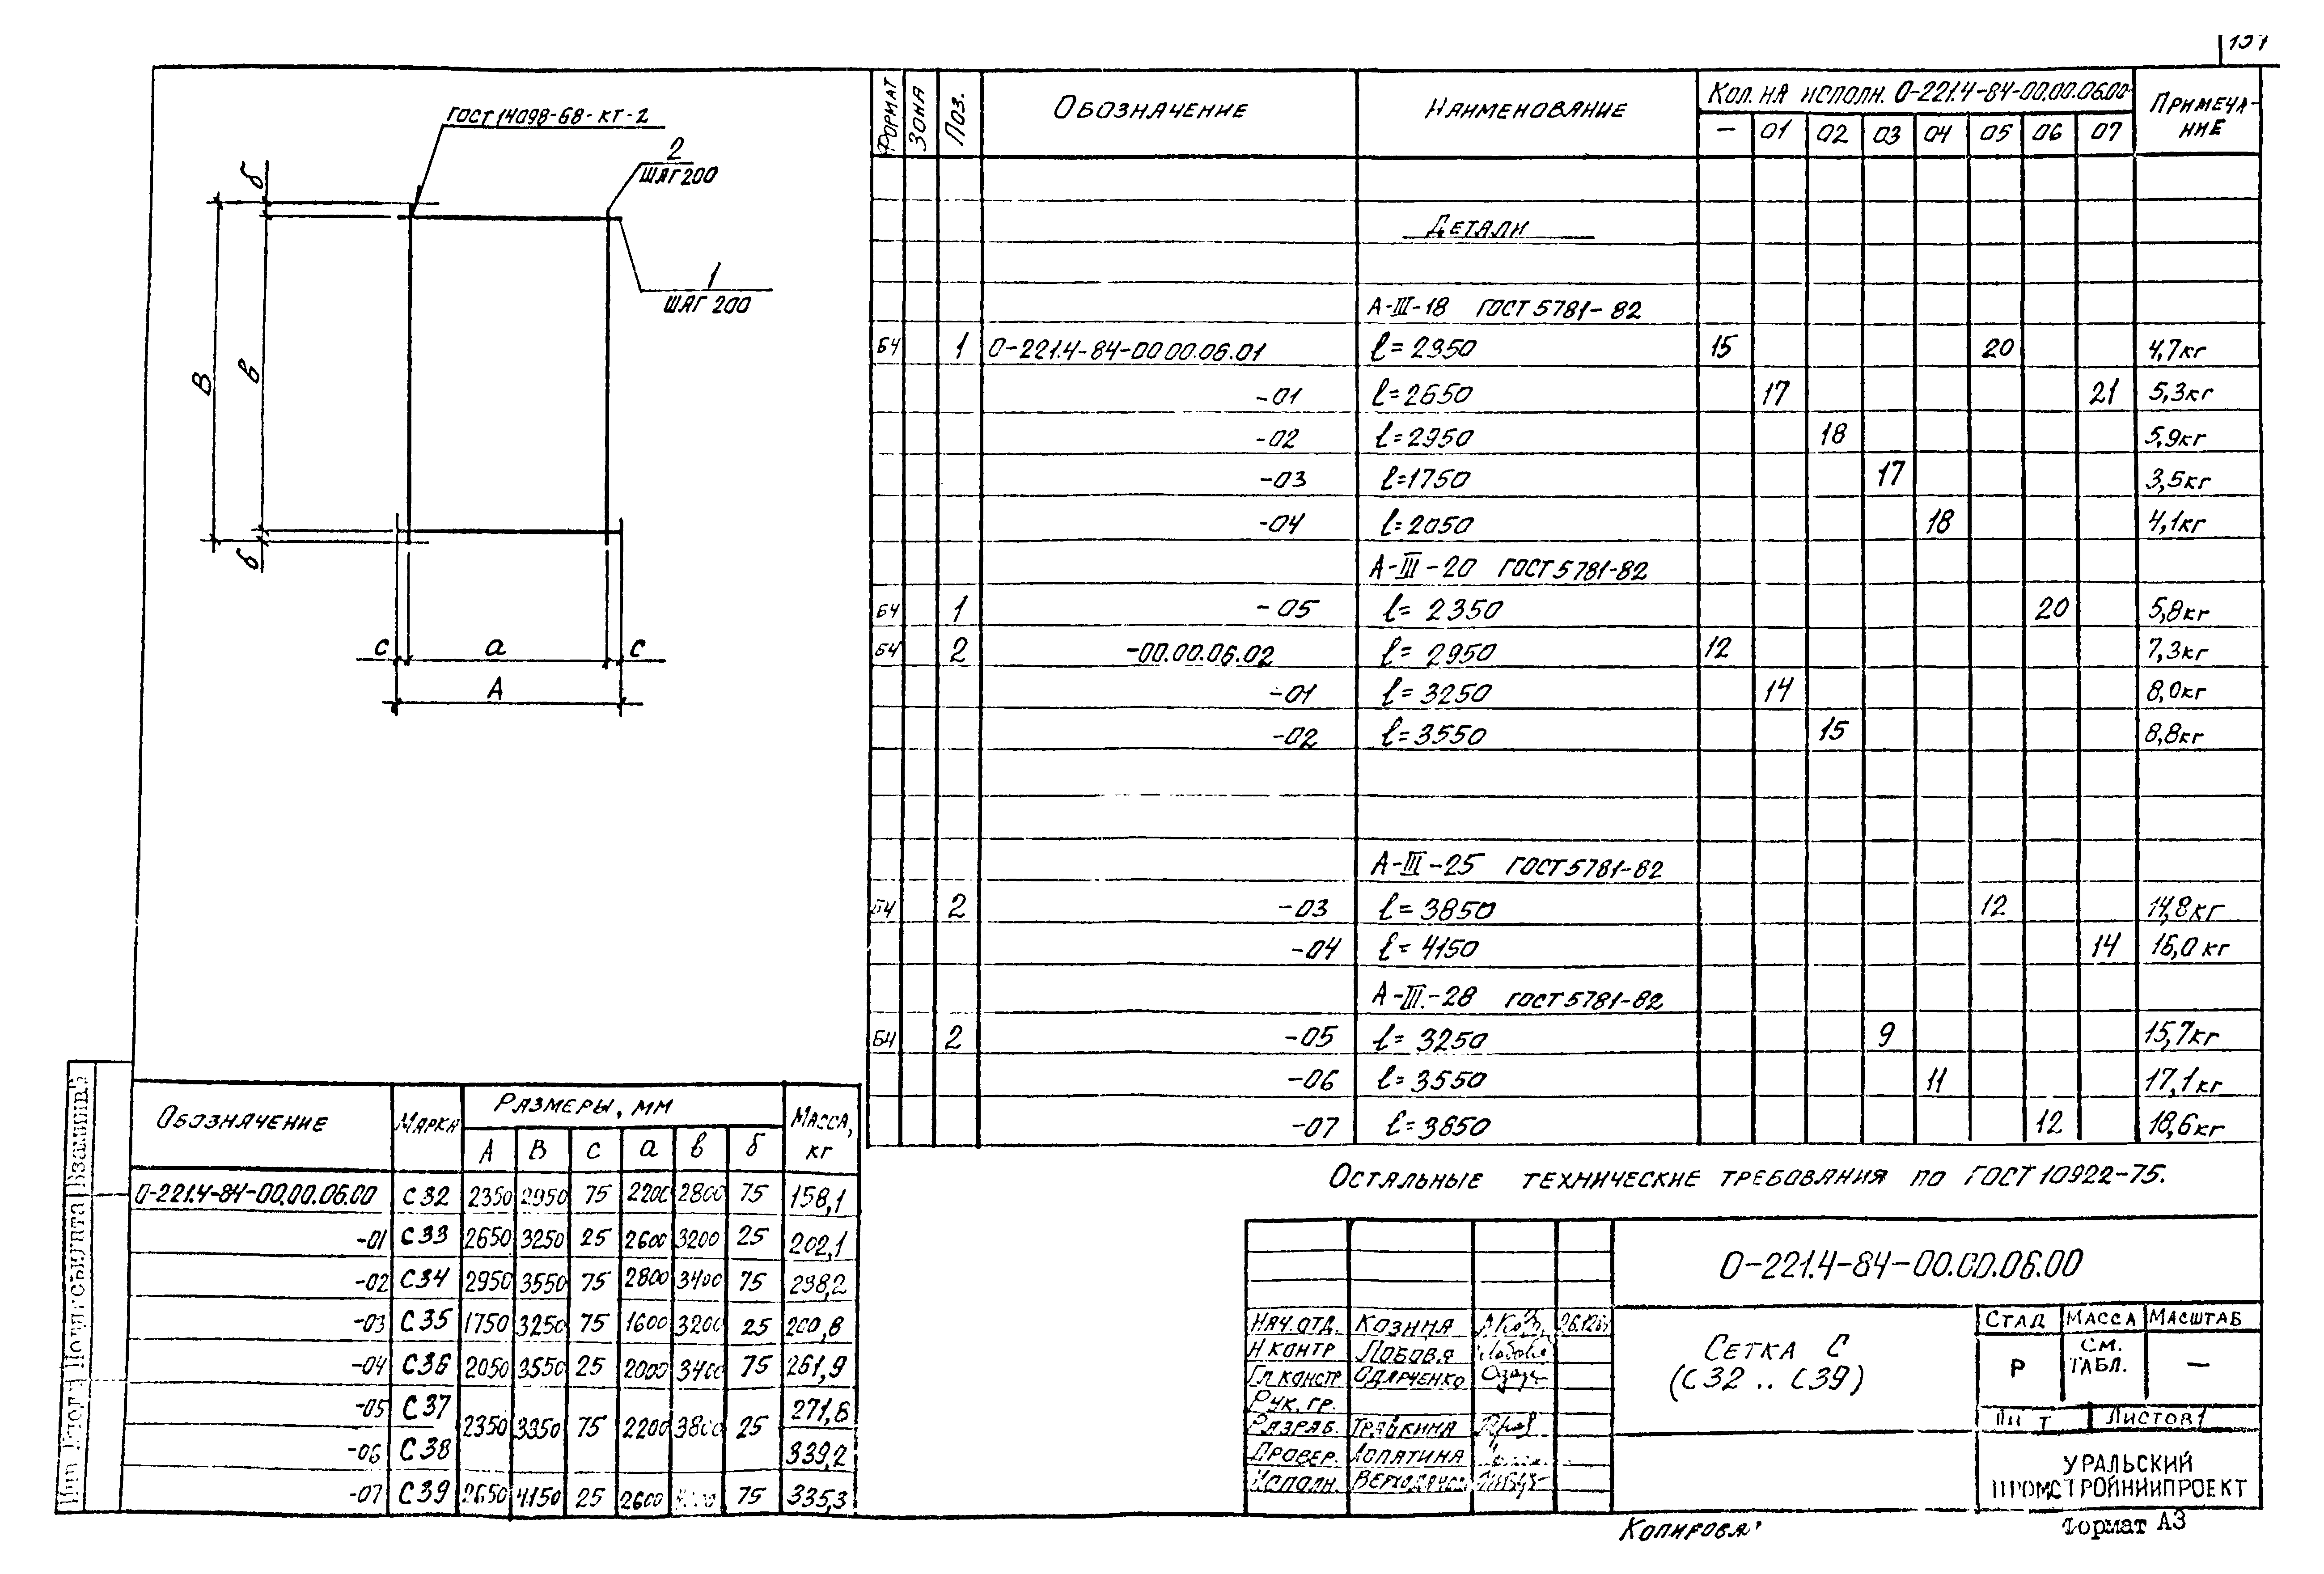 137
ГОСТ 14098-68-КТ-2
2
ШАГ 200
1
ШАГ 200
б
В
в
б
с а с
А
ФОРМАТ ЗОНА ПОЗ. ОБОЗНАЧЕНИЕ НАИМЕНОВАНИЕ КОЛ. НА ИСПОЛН. 0-221.4-84-00.00.06.00- ПРИМЕЧА-НИЕ
— 01 02 03 04 05 06 07
ДЕТАЛИ
А-III-18 ГОСТ 5781-82
БЧ 1 0-221.4-84-00.00.06.01 ℓ=2350 15 20 4,7кг
-01 ℓ=2650 17 21 5,3кг
-02 ℓ=2950 18 5,9кг
-03 ℓ=1750 17 3,5кг
-04 ℓ=2050 18 4,1кг
А-III-20 ГОСТ 5781-82
БЧ 1 -05 ℓ=2350 20 5,8кг
БЧ 2 -00.00.06.02 ℓ=2950 12 7,3кг
-01 ℓ=3250 14 8,0кг
-02 ℓ=3550 15 8,8кг
А-III-25 ГОСТ 5781-82
БЧ 2 -03 ℓ=3850 12 14,8кг
-04 ℓ=4150 14 16,0кг
А-III-28 ГОСТ 5781-82
БЧ 2 -05 ℓ=3250 9 15,7кг
-06 ℓ=3550 11 17,1кг
-07 ℓ=3850 12 18,6кг
ОБОЗНАЧЕНИЕ МАРКА РАЗМЕРЫ, ММ МАССА, КГ
А В С а в б
0-221.4-84-00.00.06.00 С32 2350 2950 75 2200 2800 75 158,1
-01 С33 2650 3250 25 2600 3200 25 202,1
-02 С34 2950 3550 75 2800 3400 75 238,2
-03 С35 1750 3250 75 1600 3200 25 200,8
-04 С36 2050 3550 25 2000 3400 75 261,9
-05 С37 2350 3850 75 2200 3800 25 271,6
-06 С38 339,2
-07 С39 2650 4150 25 2600 75 335,3
ОСТАЛЬНЫЕ ТЕХНИЧЕСКИЕ ТРЕБОВАНИЯ ПО ГОСТ 10922-75.
0-221.4-84-00.00.06.00
НАЧ.ОТД. КОЗИНА
Н КОНТР ЛОБОВА
ГЛ КОНСТР ОДАРЧЕНКО
РУК. ГР.
РАЗРАБ. ТРАВКИНА
ПРОВЕР. ЛОПАТИНА
ИСПОЛН.
СЕТКА С
(С32 .. С39)
СТАД МАССА МАСШТАБ
Р СМ. ТАБЛ. —
ЛИСТОВ 1
УРАЛЬСКИЙ
ПРОМСТРОЙНИИПРОЕКТ
КОПИРОВАЛ
Формат А3